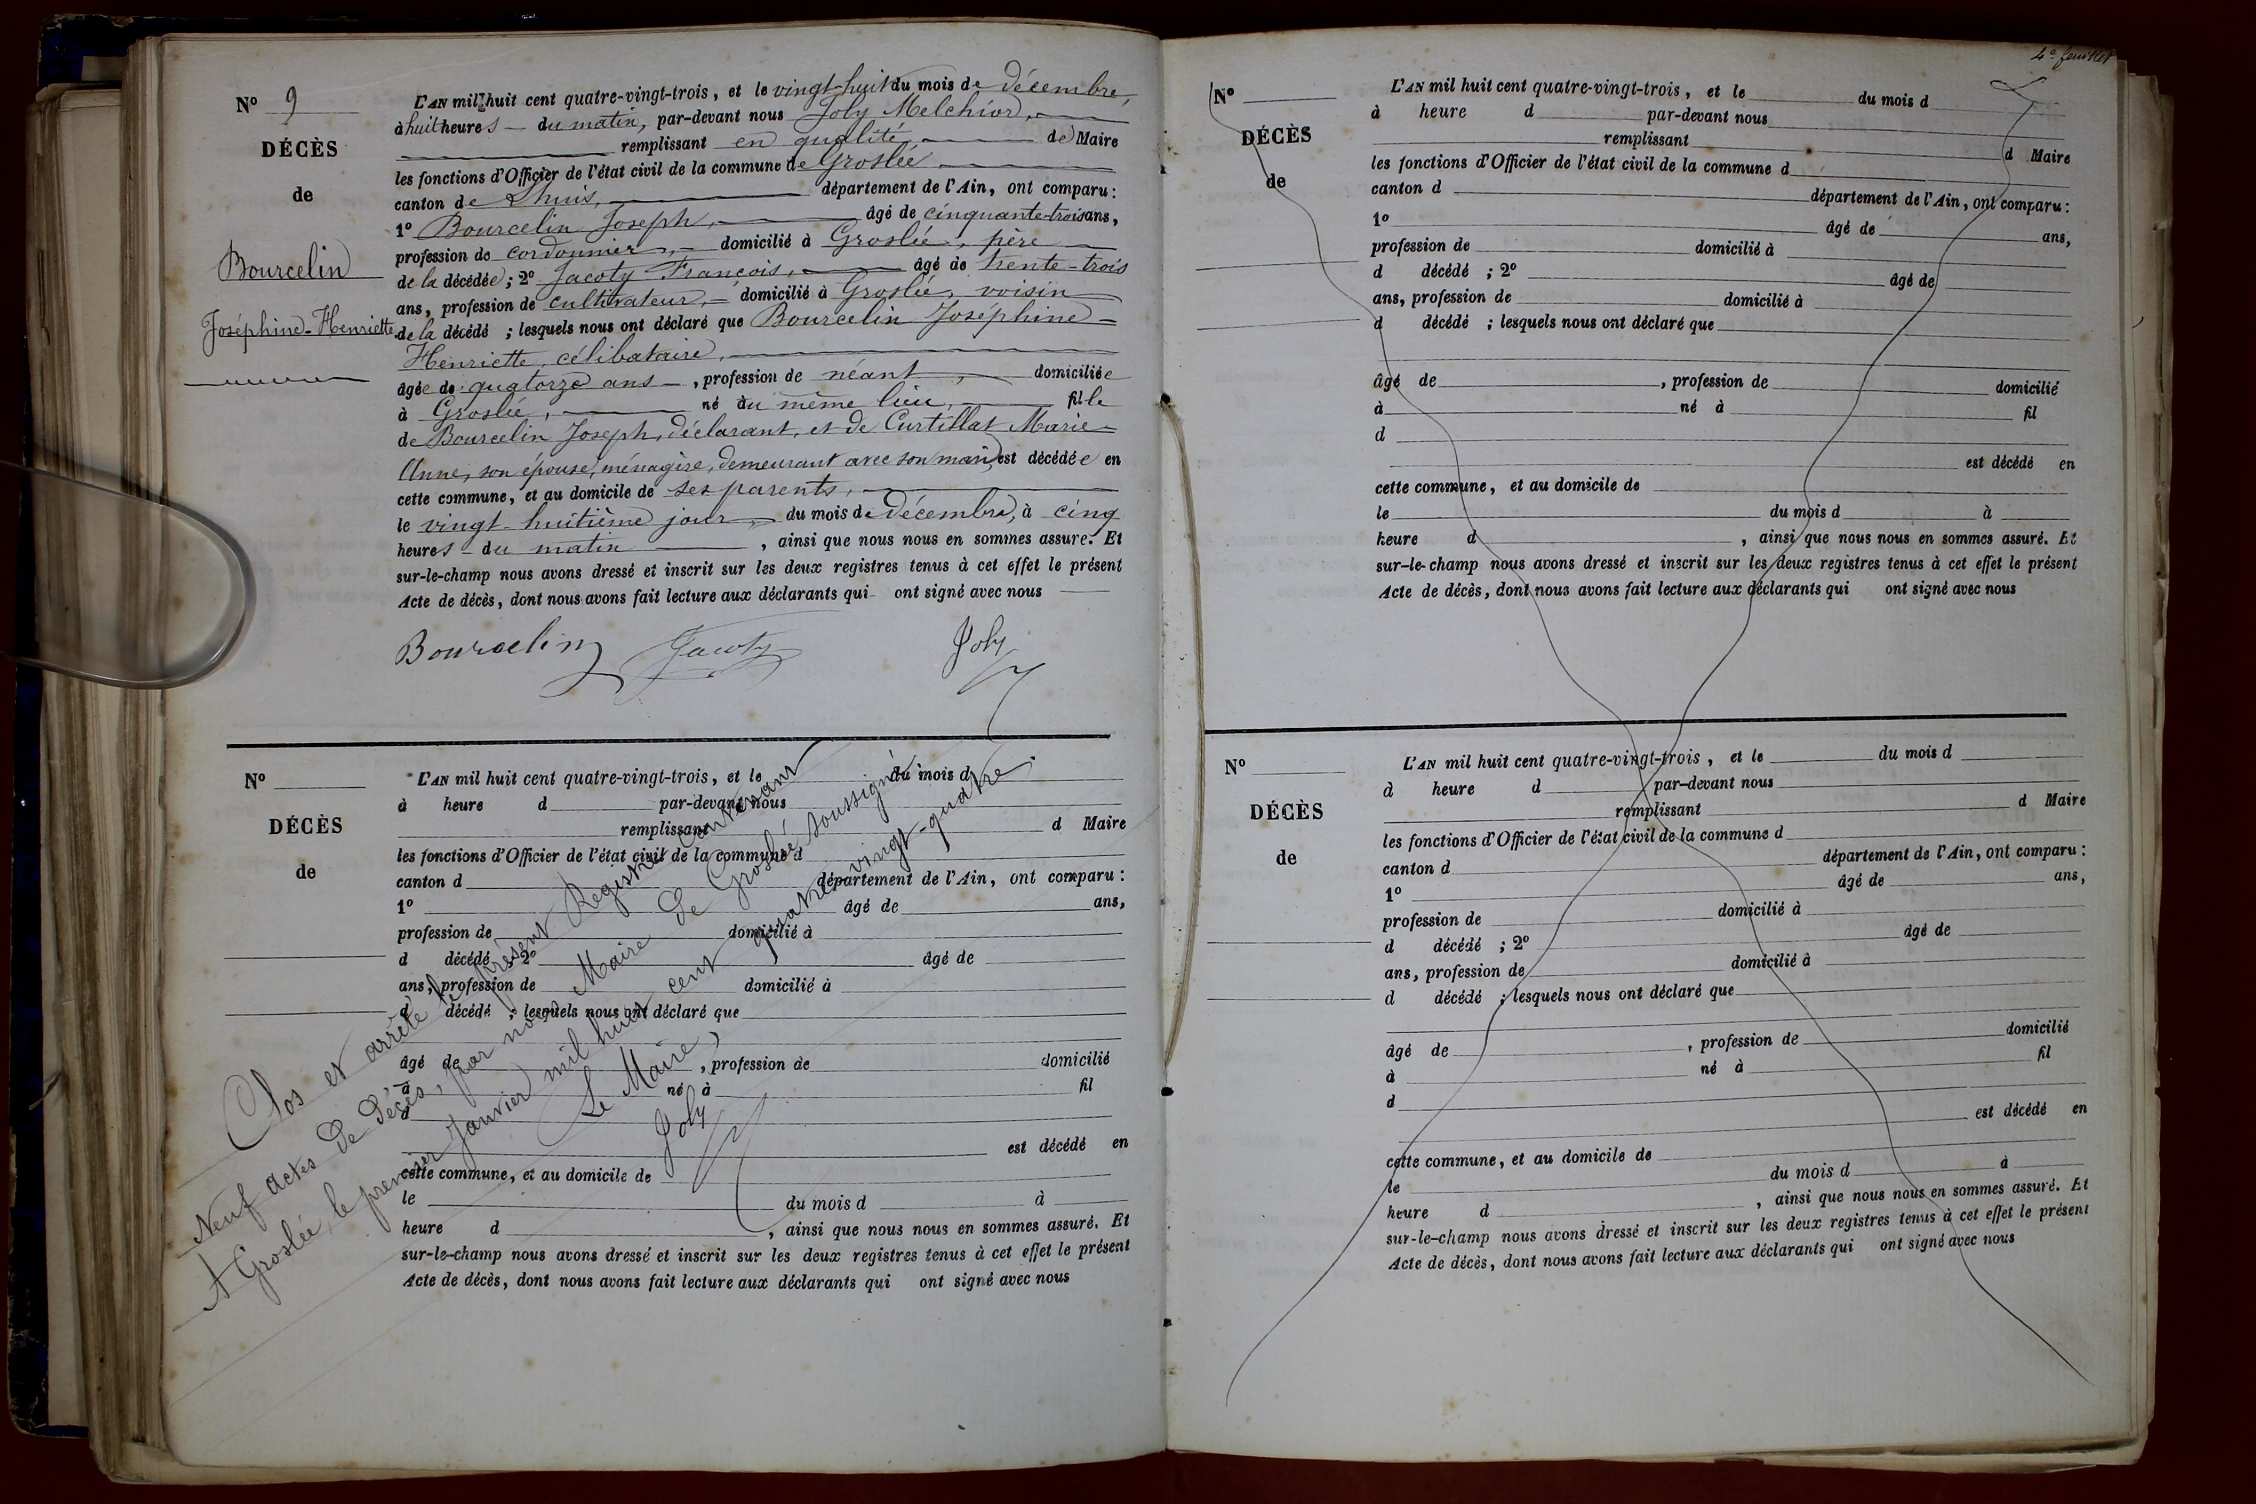 N° 9
DÉCÈS
de
Bourcelin
Joséphine-Henriette
L'AN mil huit cent quatre-vingt-trois, et le vingt-huit du mois de décembre,
à huit heures du matin, par-devant nous Joly Melchior,
remplissant en qualité de Maire
les fonctions d'Officier de l'état civil de la commune de Groslée
canton de Lhuis, département de l'Ain, ont comparu :
1° Bourcelin Joseph, âgé de cinquante-trois ans,
profession de cordonnier, domicilié à Groslée, père
de la décédée ; 2° Jacoty François, âgé de trente-trois
ans, profession de cultivateur, domicilié à Groslée, voisin
de la décédé ; lesquels nous ont déclaré que Bourcelin Joséphine-
Henriette, célibataire,
âgée de quatorze ans, profession de néant, domiciliée
à Groslée, né au même lieu, fille
de Bourcelin Joseph, déclarant, et de Curtillat Marie-
Anne, son épouse, ménagère, demeurant avec son mari, est décédée en
cette commune, et au domicile de ses parents,
le vingt-huitième jour, du mois de décembre, à cinq
heures du matin, ainsi que nous nous en sommes assuré. Et
sur-le-champ nous avons dressé et inscrit sur les deux registres tenus à cet effet le présent
Acte de décès, dont nous avons fait lecture aux déclarants qui ont signé avec nous
Bourcelin Jacoty Joly
N°
DÉCÈS
de
L'AN mil huit cent quatre-vingt-trois, et le du mois d
à heure d par-devant nous
remplissant d Maire
les fonctions d'Officier de l'état civil de la commune d
canton d département de l'Ain, ont comparu :
1° âgé de ans,
profession de domicilié à
d décédé ; 2° âgé de
ans, profession de domicilié à
d décédé ; lesquels nous ont déclaré que
âgé de , profession de domicilié
à né à fil
d
est décédé en
cette commune, et au domicile de
le du mois d à
heure d , ainsi que nous nous en sommes assuré. Et
sur-le-champ nous avons dressé et inscrit sur les deux registres tenus à cet effet le présent
Acte de décès, dont nous avons fait lecture aux déclarants qui ont signé avec nous
Clos et arrêté le présent Registre contenant
Neuf actes de décès, par nous Maire de Groslée soussigné
A Groslée, le premier Janvier mil huit cent quatre-vingt-quatre.
Le Maire,
Joly
4e feuillet
N°
DÉCÈS
de
L'AN mil huit cent quatre-vingt-trois, et le du mois d
à heure d par-devant nous
remplissant d Maire
les fonctions d'Officier de l'état civil de la commune d
canton d département de l'Ain, ont comparu :
1° âgé de ans,
profession de domicilié à
d décédé ; 2° âgé de
ans, profession de domicilié à
d décédé ; lesquels nous ont déclaré que
âgé de , profession de domicilié
à né à fil
d
est décédé en
cette commune, et au domicile de
le du mois d à
heure d , ainsi que nous nous en sommes assuré. Et
sur-le-champ nous avons dressé et inscrit sur les deux registres tenus à cet effet le présent
Acte de décès, dont nous avons fait lecture aux déclarants qui ont signé avec nous
N°
DÉCÈS
de
L'AN mil huit cent quatre-vingt-trois, et le du mois d
à heure d par-devant nous
remplissant d Maire
les fonctions d'Officier de l'état civil de la commune d
canton d département de l'Ain, ont comparu :
1° âgé de ans,
profession de domicilié à
d décédé ; 2° âgé de
ans, profession de domicilié à
d décédé ; lesquels nous ont déclaré que
âgé de , profession de domicilié
à né à fil
d
est décédé en
cette commune, et au domicile de
le du mois d à
heure d , ainsi que nous nous en sommes assuré. Et
sur-le-champ nous avons dressé et inscrit sur les deux registres tenus à cet effet le présent
Acte de décès, dont nous avons fait lecture aux déclarants qui ont signé avec nous